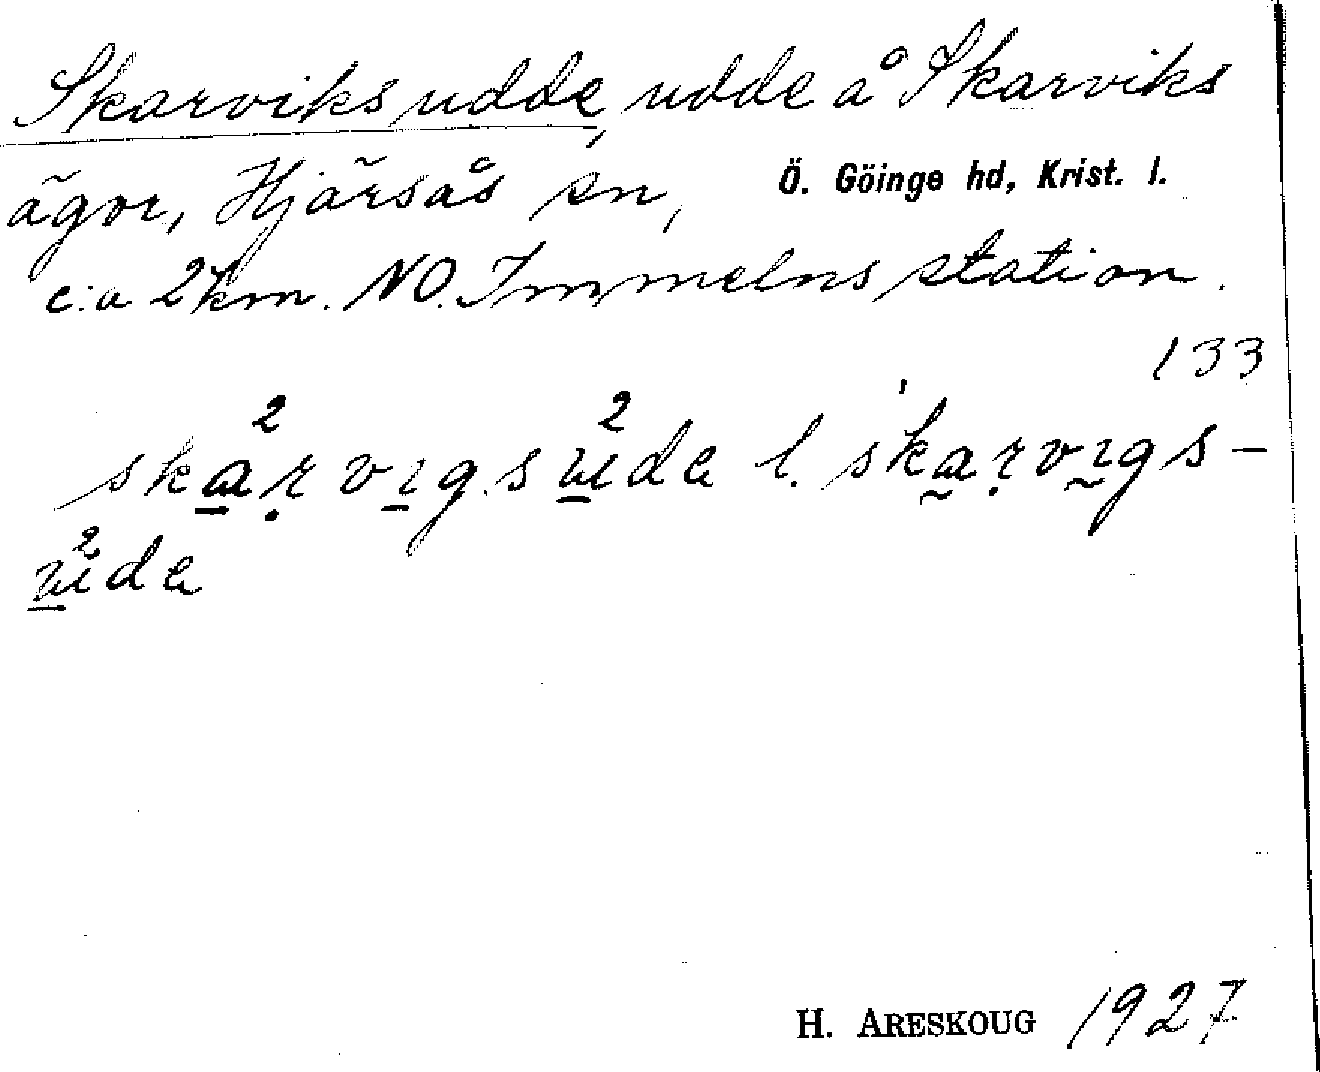 Skarviksudde, udde å Skarviks
ägor, Hjärsås sn, Ö. Göinge hd, Krist. l.
c:a 2 km. NO. Immelns station.
133
skạ²ṛvıgsu²da l. skaṛvıgs-
u²da
H. ARESKOUG 1927